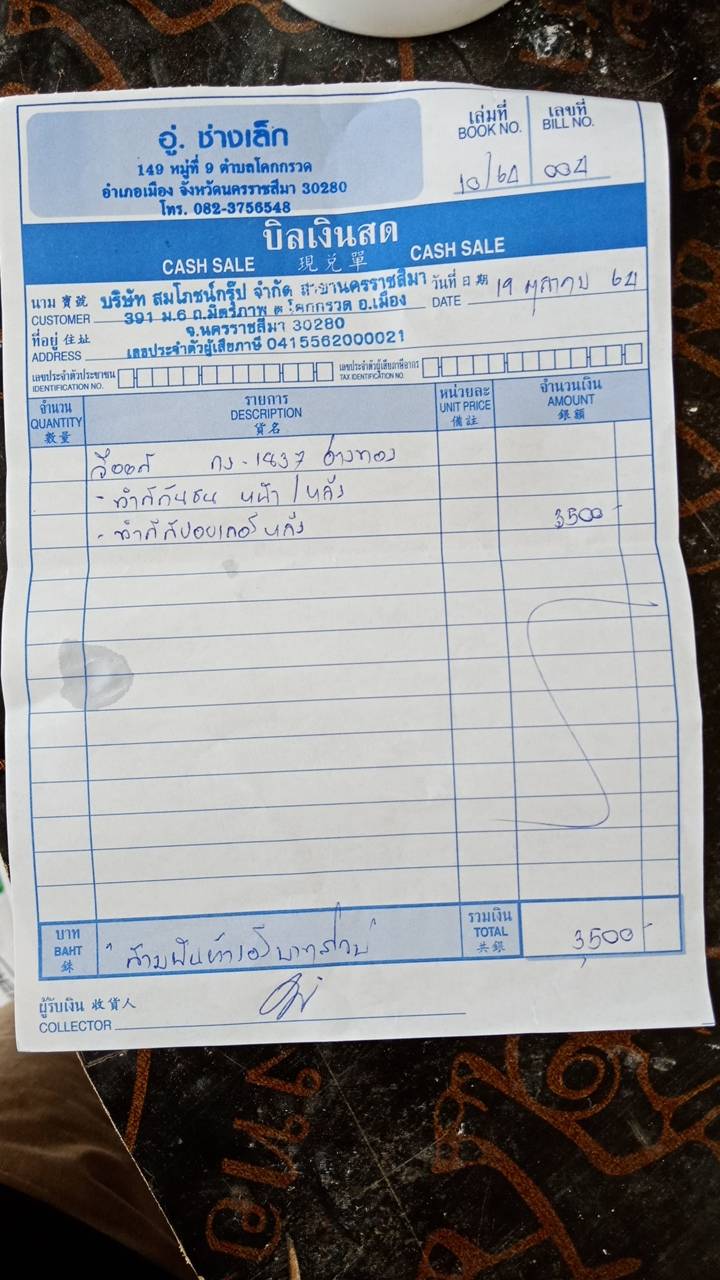 อู่. ช่างเล็ก
149 หมู่ที่ 9 ตำบลโคกกรวด
อำเภอเมือง จังหวัดนครราชสีมา 30280
โทร. 082-3756548
เล่มที่ เลขที่
BOOK NO. BILL NO.
10/64 004
บิลเงินสด
CASH SALE 現兌單 CASH SALE
นาม寶號 บริษัท สมโภชน์กรุ๊ป จำกัด สาขานครราชสีมา วันที่日期 19 ตุลาคม 64
CUSTOMER 391 ม.6 ถ.มิตรภาพ ต.โคกกรวด อ.เมือง DATE
ที่อยู่ 住址 จ.นครราชสีมา 30280
ADDRESS เลขประจำตัวผู้เสียภาษี 0415562000021
เลขประจำตัวประชาชน เลขประจำตัวผู้เสียภาษีอากร
IDENTIFICATION NO. TAX IDENTIFICATION NO.
จำนวน รายการ หน่วยละ จำนวนเงิน
QUANTITY DESCRIPTION UNIT PRICE AMOUNT
數量 貨名 備註 銀額
กง-1837 อ่างทอง
- ทำสีกันชน หน้า/หลัง
- ทำสีสปอยเลอร์หลัง 3500-
บาท รวมเงิน
BAHT "สามพันห้าร้อยบาทถ้วน" TOTAL 3,500-
銖 共銀
ผู้รับเงิน 收貨人
COLLECTOR